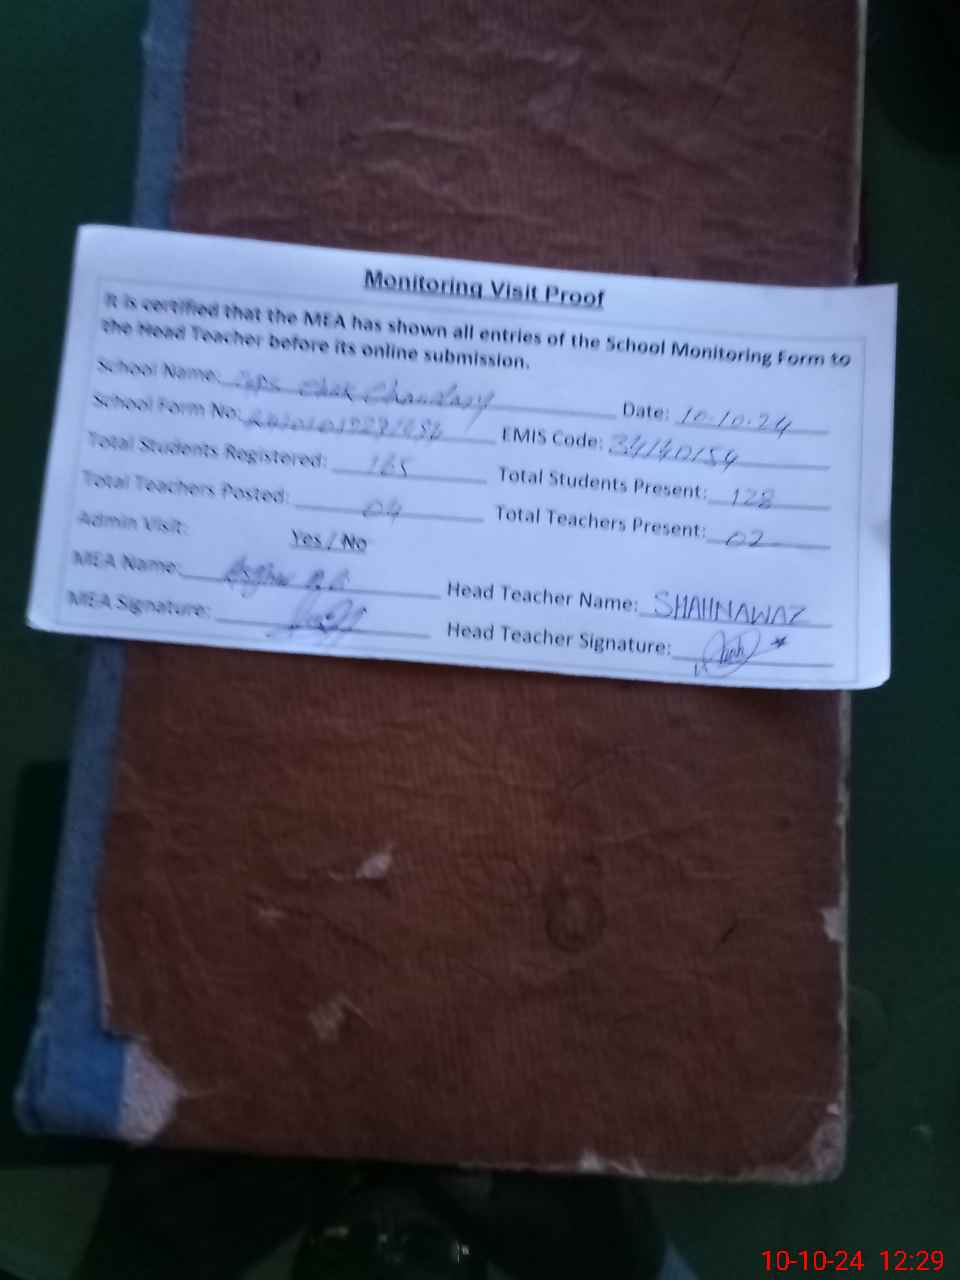 Monitoring Visit Proof
It is certified that the MEA has shown all entries of the School Monitoring Form to
the Head Teacher before its online submission.
School Name: Chak Date: 10-10-24
School Form No: EMIS Code: 34140154
Total Students Registered: 165 Total Students Present: 128
Total Teachers Posted: 04 Total Teachers Present: 02
Admin Visit: Yes / No
MEA Name: Head Teacher Name: SHAHNAWAZ
MEA Signature: Head Teacher Signature:
10-10-24 12:29